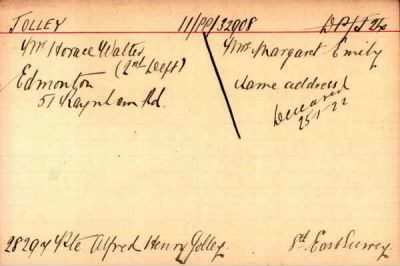 JOLLEY 11/PP/32908 DP/J 24
Mr Horace Walter Mrs. Margaret Emily
(2nd Dept)
Edmonton same address
51 Raynham Rd. Deceased
25-1-22
28294 Pte Alfred Henry Jolley. 8th East Surrey.